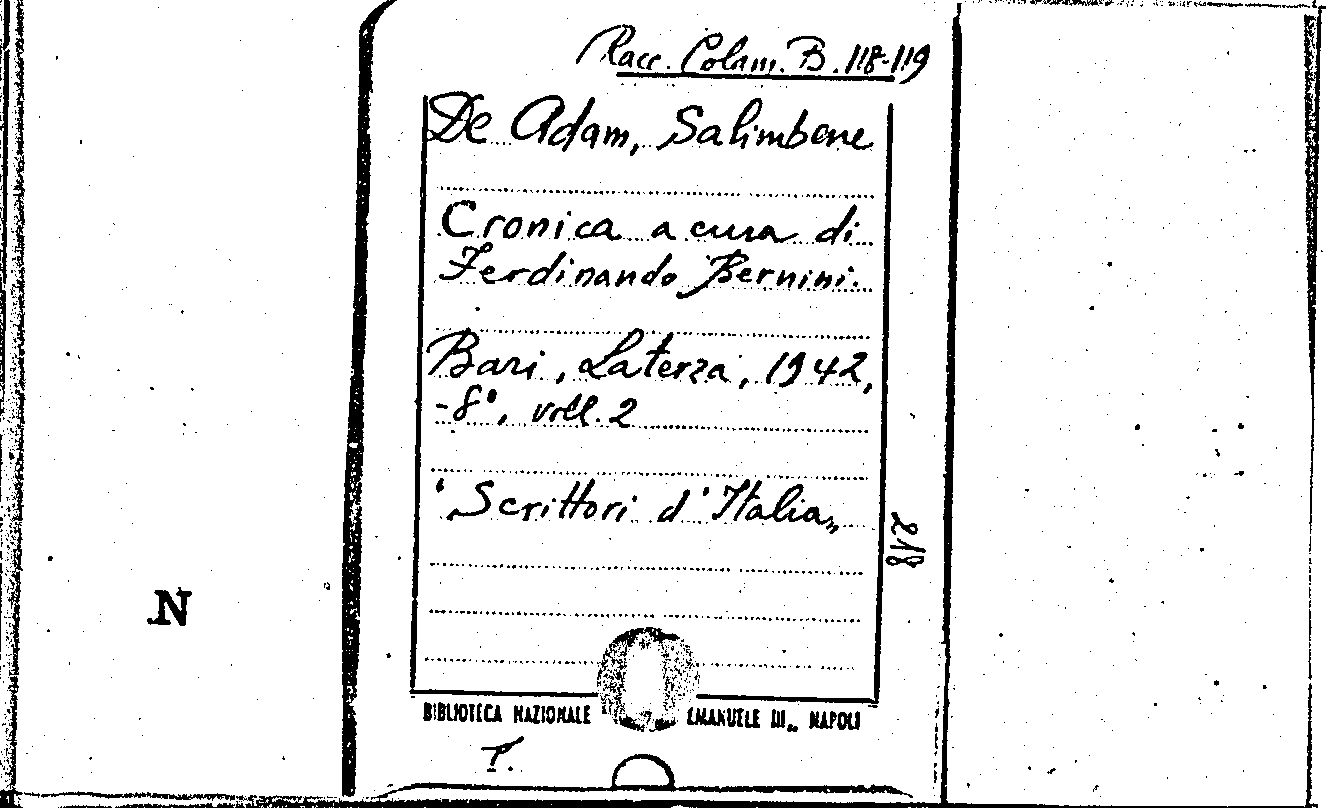 Racc. Colam. B. 118-119
De Adam, Salimbene
Cronica a cura di
Ferdinando Bernini.
Bari, Laterza, 1942,
-8°, voll. 2
"Scrittori d'Italia"
218
N
BIBLIOTECA NAZIONALE EMANUELE III" NAPOLI
T.